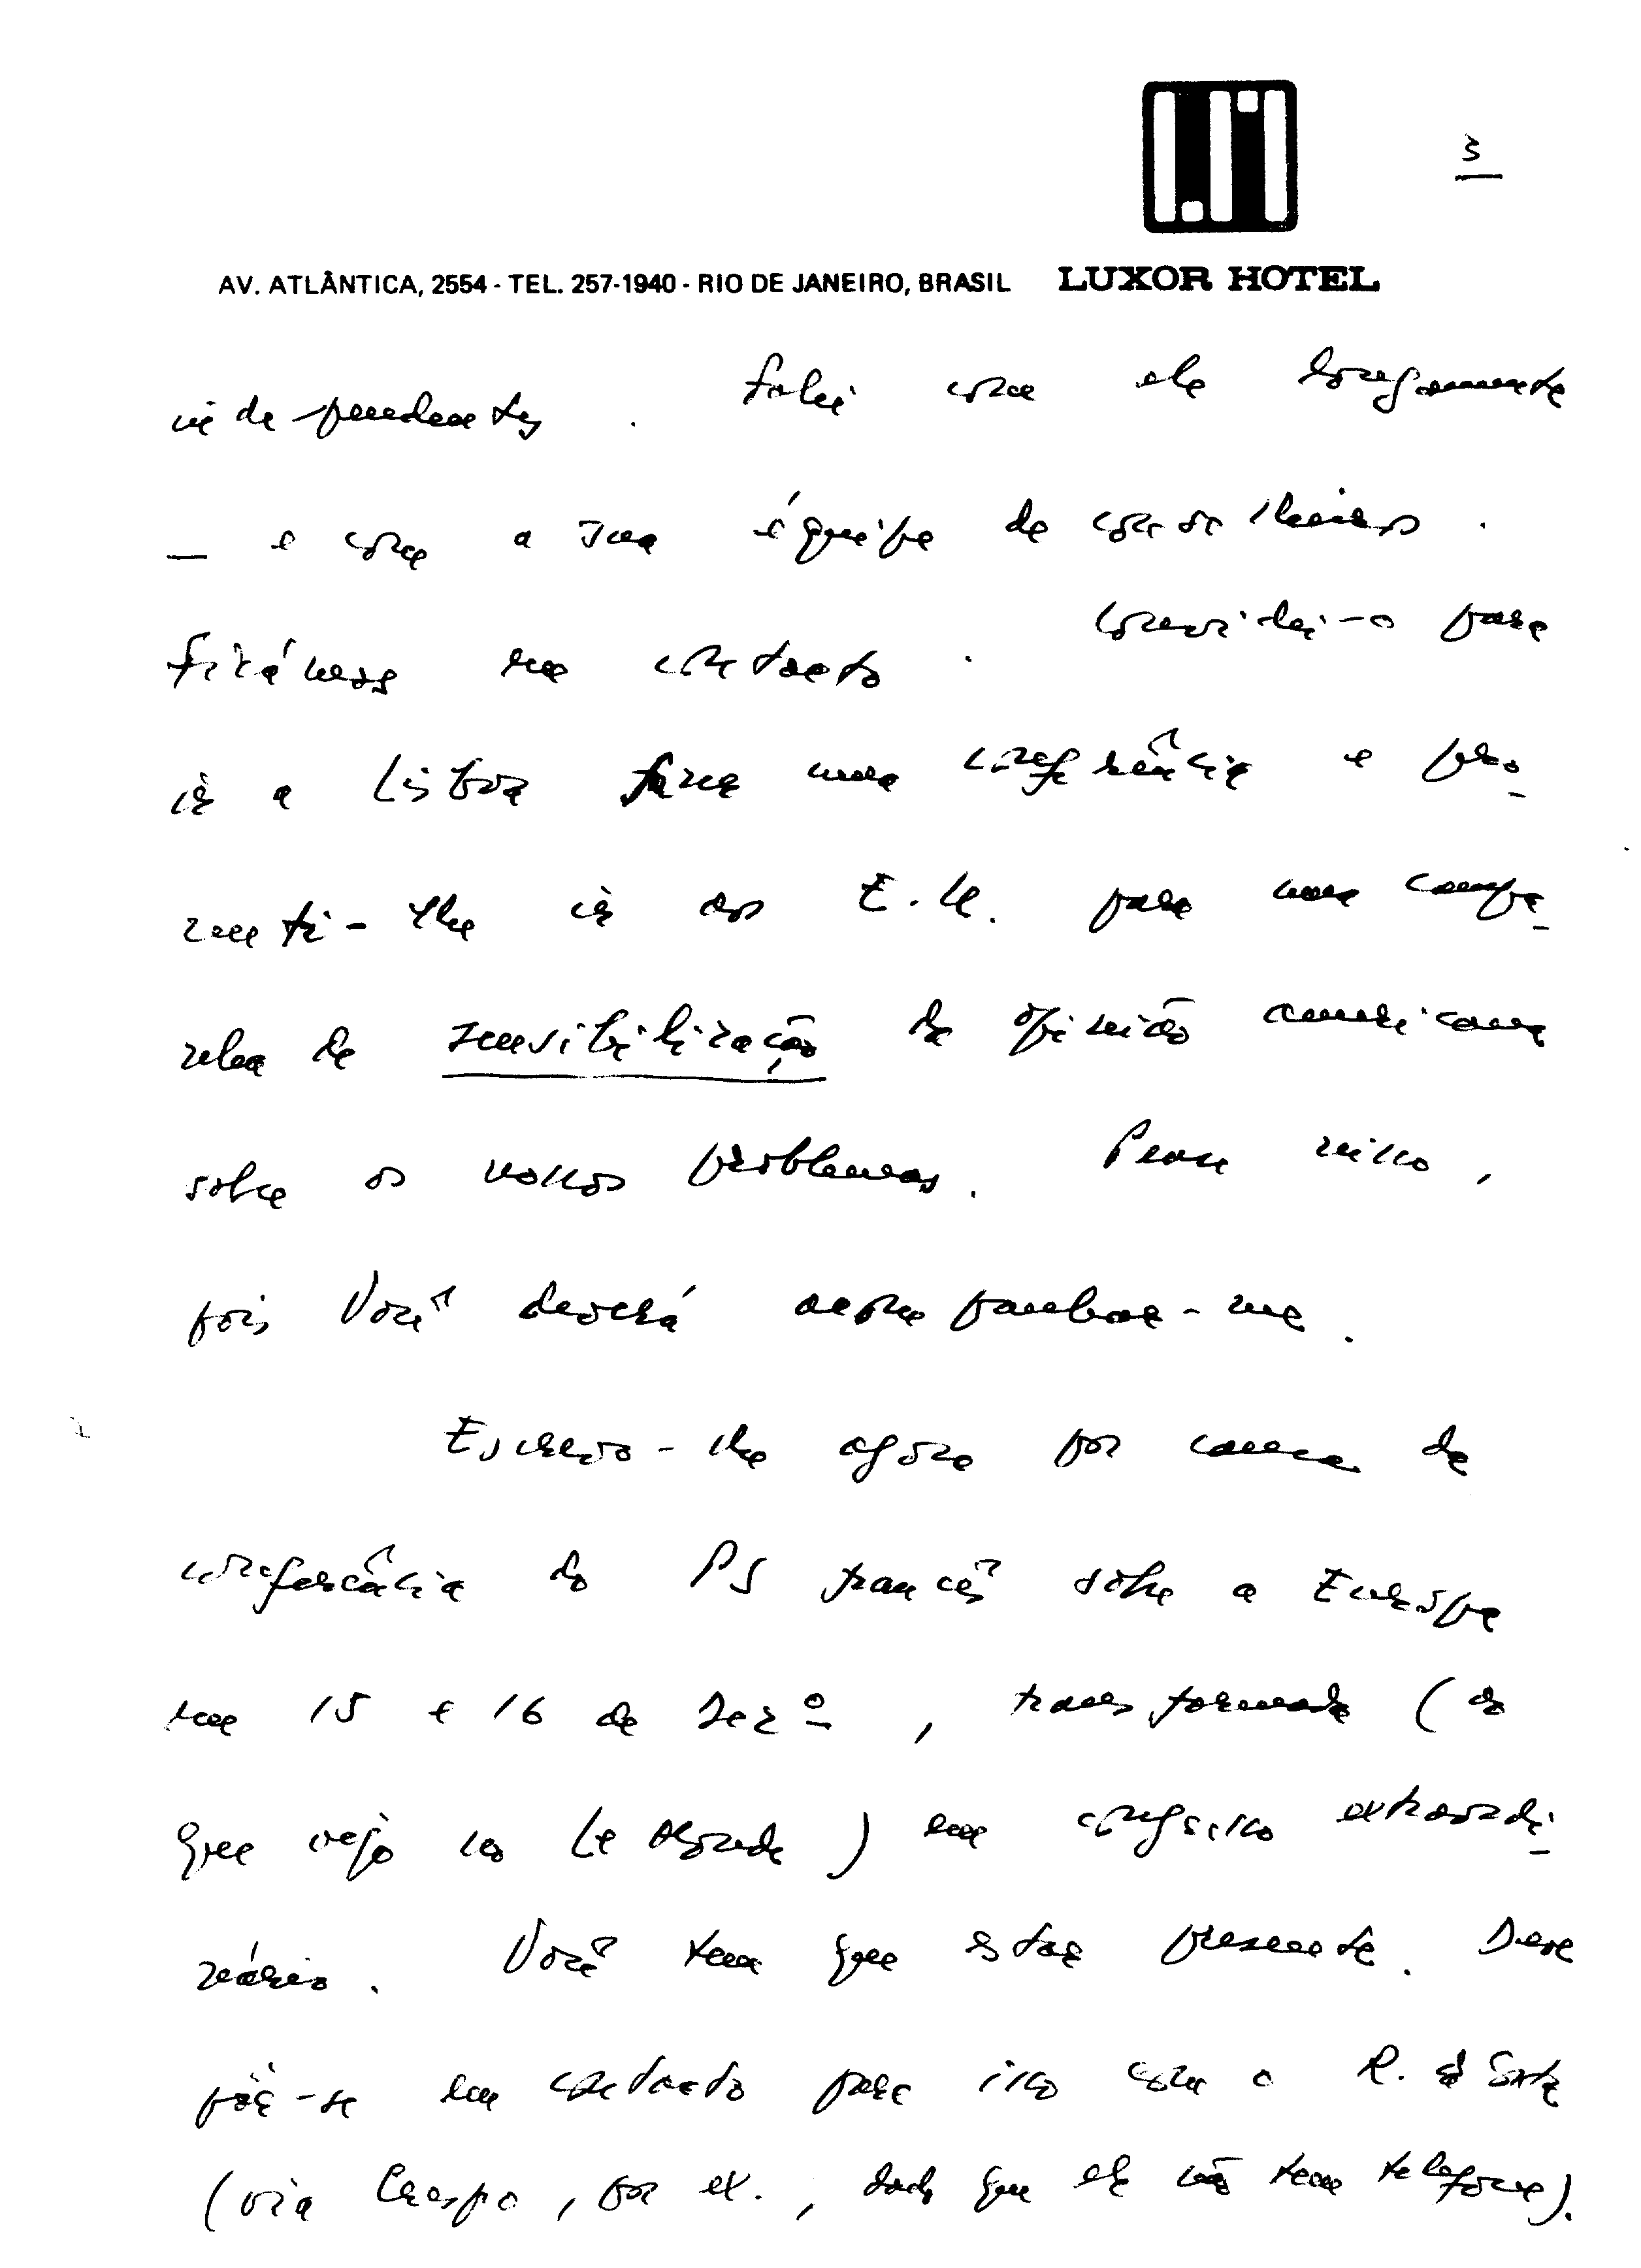 3
AV. ATLÂNTICA, 2554 - TEL. 257-1940 - RIO DE JANEIRO, BRASIL LUXOR HOTEL
independentes. Falei com ele longamente
— e com a sua équipe de conselheiros.
Ficámos em contacto. Convidei-o para
ir a Lisboa fazer uma conferência e pro-
meti-lhe ir aos E.U. para uma campa-
nha de sensibilização da opinião americana
sobre os nossos problemas. Pense nisso,
pois Você deverá acompanhar-me.
Escrevo-lhe agora por causa da
conferência do PS francês sobre a Europa
em 15 e 16 de Dezº, transformada (ao
que vejo no Le Monde) em congresso extraordi-
nário. Você tem que estar presente. Deve
pôr-se em contacto para isso com o R. da Costa
(via Crespo, por ex., dado que ele não tem telefone).